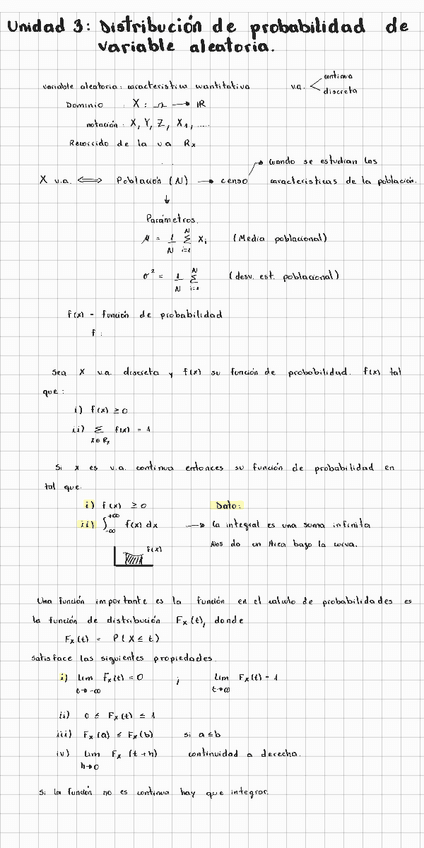 Unidad 3: Distribución de probabilidad de
variable aleatoria.
variable aleatoria: característica cuantitativa v.a. < continua
discreta
Dominio : X : Ω → IR
notación : X, Y, Z, X₁, ....
Recorrido de la va Rx
→ cuando se estudian las
X v.a. ⟺ Población (N) → censo características de la población.
↓
Parámetros.
μ = 1/N Σ_{i=1}^{N} Xᵢ (Media poblacional)
σ² = 1/N Σ_{i=1}^{N} (desv. est. poblacional)
f(x) = función de probabilidad
f :
Sea X v.a discreta y f(x) su función de probabilidad. f(x) tal
que :
i) f(x) ≥ 0
ii) Σ f(x) = 1
x ∈ Rx
Si x es v.a. continua entonces su función de probabilidad en
tal que
i) f(x) ≥ 0 Dato:
ii) ∫_{-∞}^{+∞} f(x) dx → la integral es una suma infinita
f(x) Nos da un Área bajo la curva.
Una función importante es la función en el calculo de probabilidades es
la función de distribución Fx(t), donde
Fx(t) = P(X ≤ t)
satisface las siguientes propiedades
i) lim Fx(t) = 0 ; lim Fx(t) = 1
t→-∞ t→∞
ii) 0 ≤ Fx(t) ≤ 1
iii) Fx(a) ≤ Fx(b) si a≤b
iv) lim Fx(t+h) continuidad a derecha.
h→0
Si la función no es continua hay que integrar.